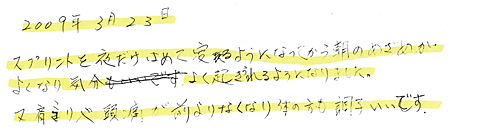 2009年 3月 23日
スプリントを夜だけはめて寝るようになってから朝のめざめが
よくなり気分もよく起きれるようになりました。
又肩こりや頭痛が前よりなくなり体の方も調子いいです。